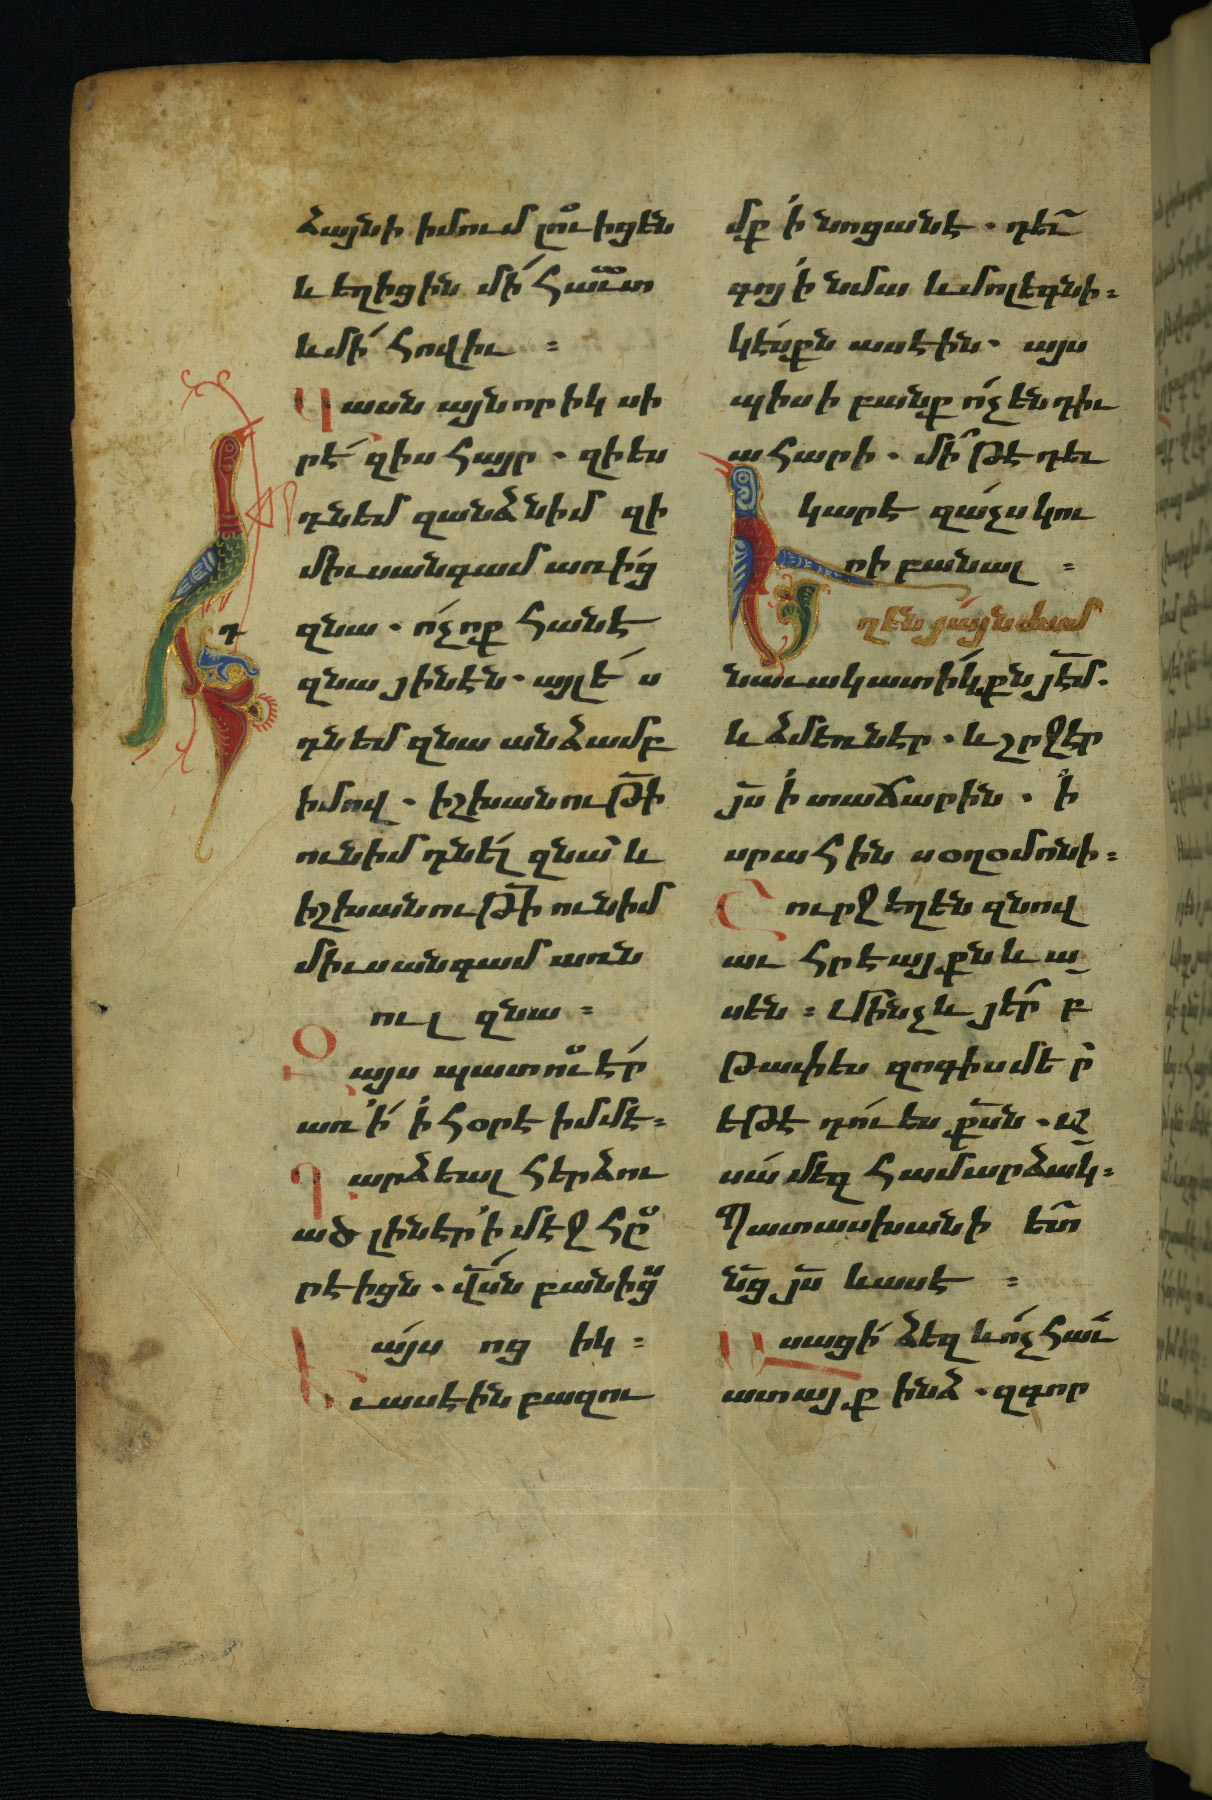 ձայնի իմում լո՛ւիցեն
և եղիցին մի՛ հաւտ
և մի՛ հովիւ ։
Վասն այնորիկ սի
րէ՛ զիս հայր . զի ես
դնեմ զանձն իմ զի
միւսանգամ առի՛ց
զնա . ո՛չ ոք հանէ
զնա յինէն . այլ ե՛ս
դնեմ զնա անձամբ
իմով . իշխանութի
ունիմ դնել զնա՛ և
իշխանութի ունիմ
միւսանգամ առն
ուլ զնա ։
Զայս պատուէր
առի՛ ի հօրէ իմմէ ։
Դարձեալ հերձու
ած լինէր ի մէջ հր
րէիցն . վսն բանից
այս ոց իկ ։
Եւ ասէին բազու
մք ի նոցանէ . դեւ
գոյ ի նմա և մոլեգնի ։
կէսքն ասէին . այս
պիսի բանք ո՛չ են դիւ
ահարի . մի՛ թէ դեւ
կարէ զաչս կու
րի բանալ ։
Եղեն յայնժամ
նաւակատիկքն յեմ .
և ձմեռն էր . և շրջէր
յս ի տաճարին . ի
սրահին սօղօմոնի ։
Շուրջ եղեն զնով
աւ հրէայքն և ա
սեն ։ Մինչև յեր բ
թափես զոգիս մեր
եթէ դու ես քսն . ա
սա՛ մեզ համարձակ ։
Պատասխանի ետ
նց յս և ասէ ։
Ասացի՛ ձեզ և ո՛չ հաւ
ատայք ինձ . զգոր